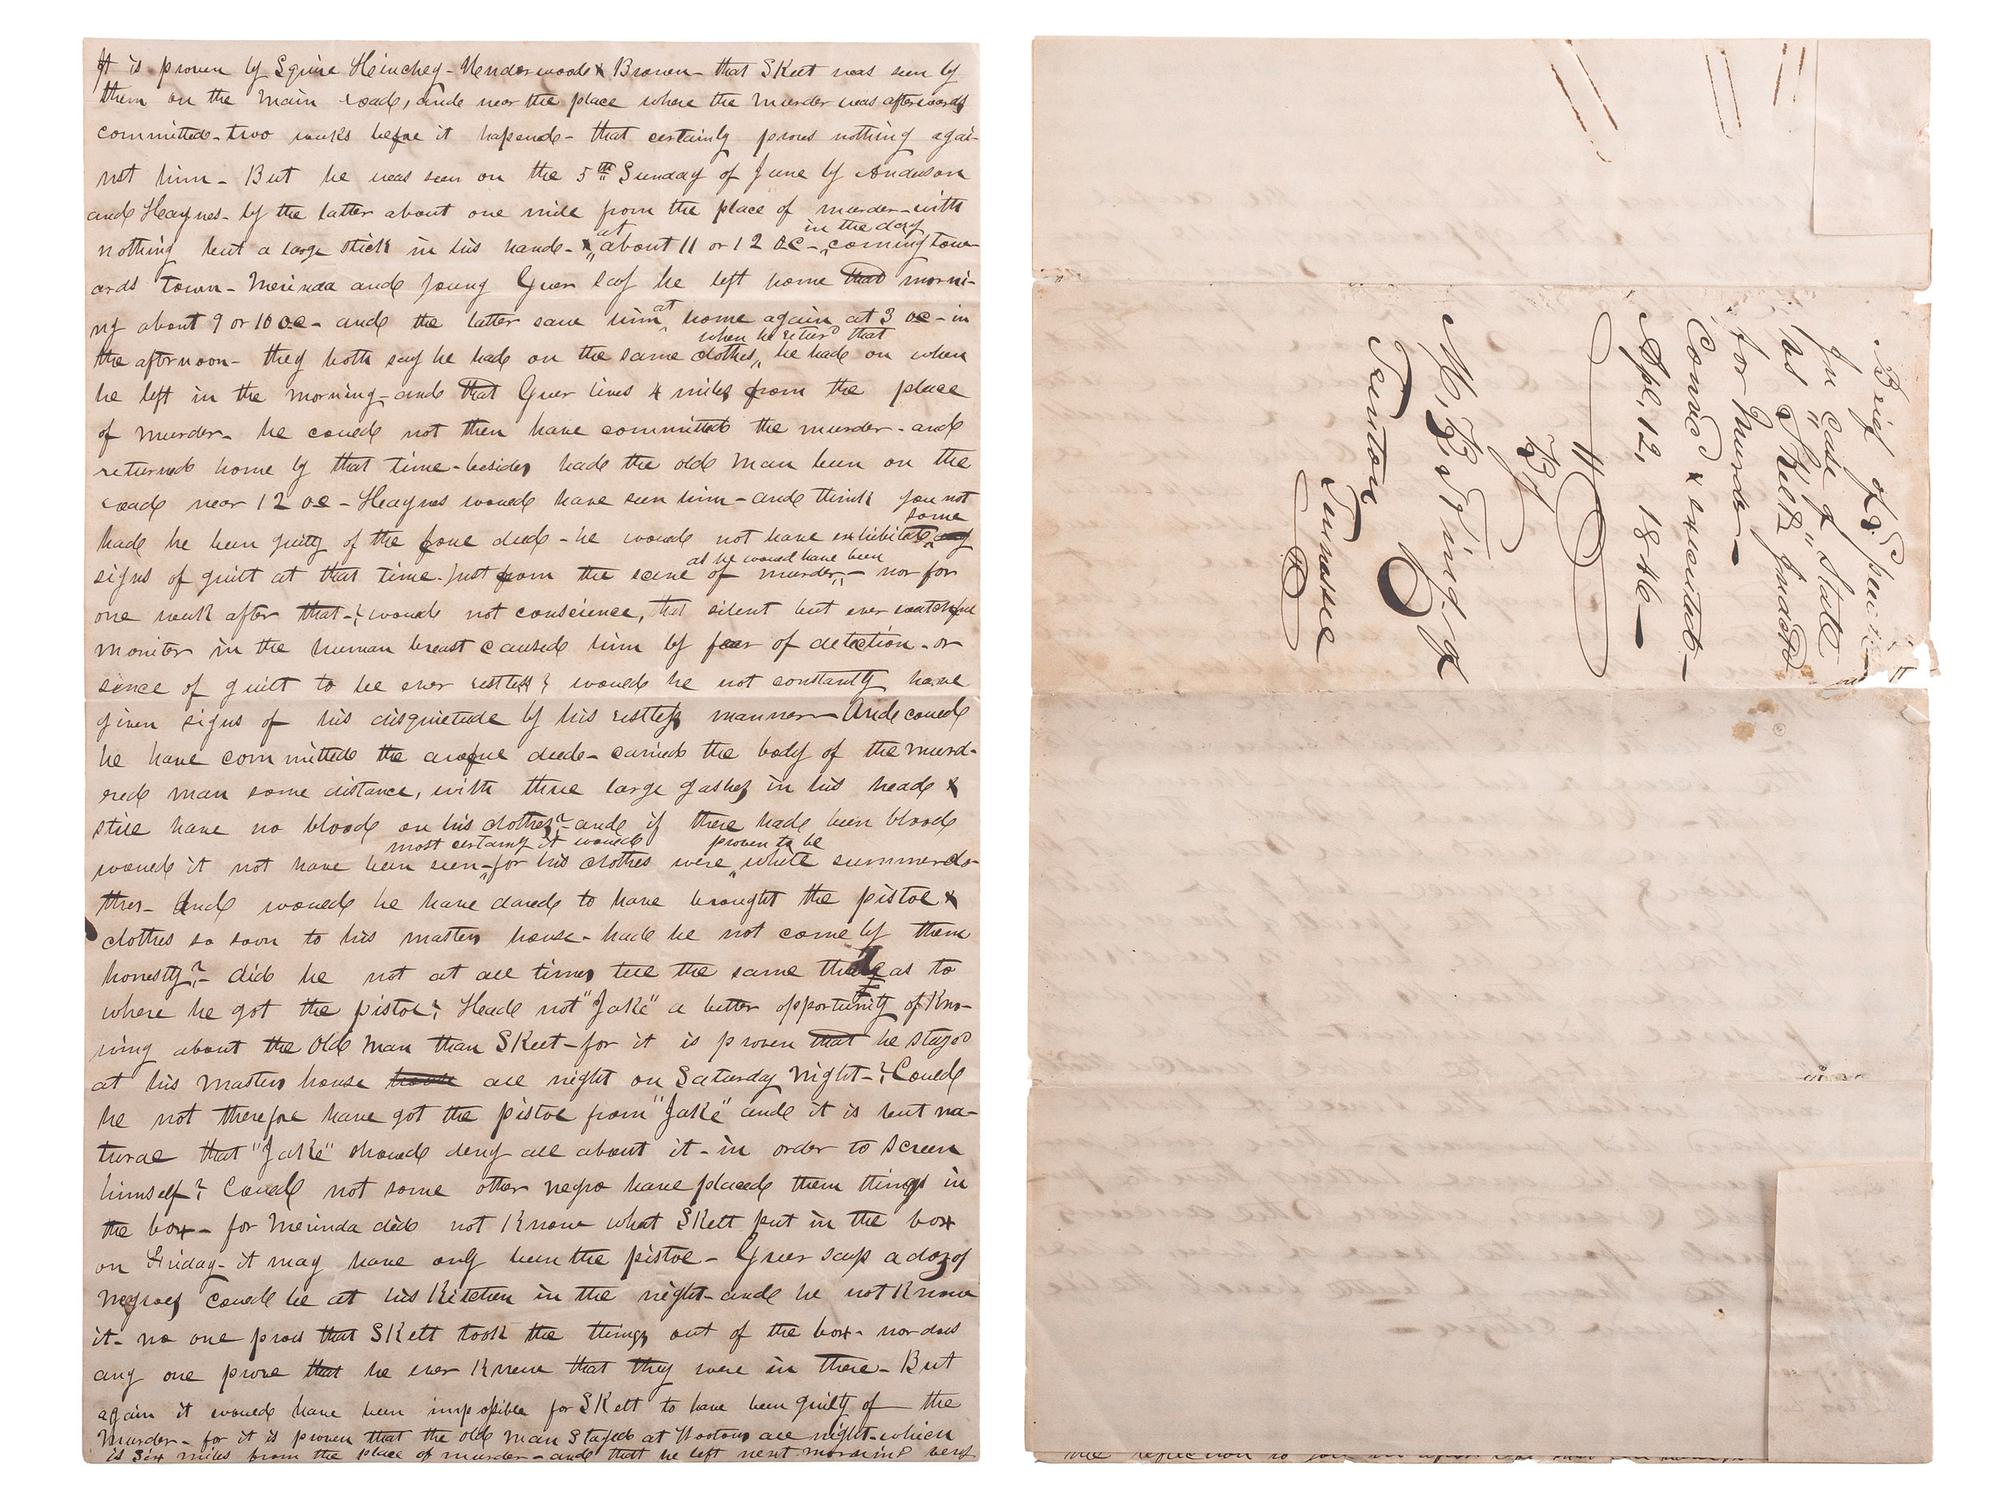 It is proven by Squire Hinchey - Henderwood & Brown - that Skett was seen by
them on the main road, and near the place where the murder was afterwards
committed - two weeks before it hapend - that certainly proves nothing agai-
nst him - But he was seen on the 5th Sunday of June by Anderson
and Haynes - by the latter about one mile from the place of murder - with
nothing but a large stick in his hand - & at about 11 or 12 oc - in the day coming tow-
ards town - Merinda and young Grier say he left home that morni-
ng about 9 or 10 oc - and the latter saw him at home again at 3 oc - in
the afternoon - they both say he had on the same clothes, when he returd that he had on when
he left in the morning - and that Grier lives 4 miles from the place
of murder - he could not then have committed the murder - and
returned home by that time - besides, had the old man been on the
road near 12 oc - Haynes would have seen him - and think you not
had he been guilty of the foul deed - he would not have exhibited some any
signs of guilt at that time - just from the scene of murder, as he would have been - nor for
one week after that - ? would not conscience, that silent but ever watchful
monitor in the human breast caused him by fear of detection - or
sence of guilt to be ever restless ? would he not constantly have
given signs of his disquietude by his restless manner - And could
he have committed the awful deed - carried the body of the murd-
red man some distance, with three large gashes in his head &
still have no blood on his clothes ? - and if there had been blood
would it not have been seen - most certainly it would for his clothes were proven to be white summer clo-
thes - And would he have dared to have brought the pistol &
clothes so soon to his masters house - had he not come by them
honestly ? - did he not at all times tell the same tale as to
where he got the pistol ? Had not "Jake" a better opportunity of kno-
wing about the old man than Skett - for it is proven that he stayed
at his masters house all night on Saturday night - ? Could
he not therefore have got the pistol from "Jake" and it is but na-
tural that "Jake" should deny all about it - in order to screen
himself ? Could not some other negro have placed them things in
the box - for Merinda did not know what Skett put in the box
on Friday - it may have only been the pistol - Grier says a doz of
Negroes could be at his Kitchen in the night - and he not know
it - no one proves that Skett took the things out of the box - nor does
any one prove that he ever knew that they were in there - But
again it would have been impossible for Skett to have been guilty of the
murder - for it is proven that the old man stayed at Wootons all night - which
is six miles from the place of murder - and that he left next morning very
Brief of Speech
in case of "State
vs Skelt" Indicted
for Murder -
Convd & executed -
Apl. 12, 1846 -
By
M. B. King. of
Trenton
Tennessee